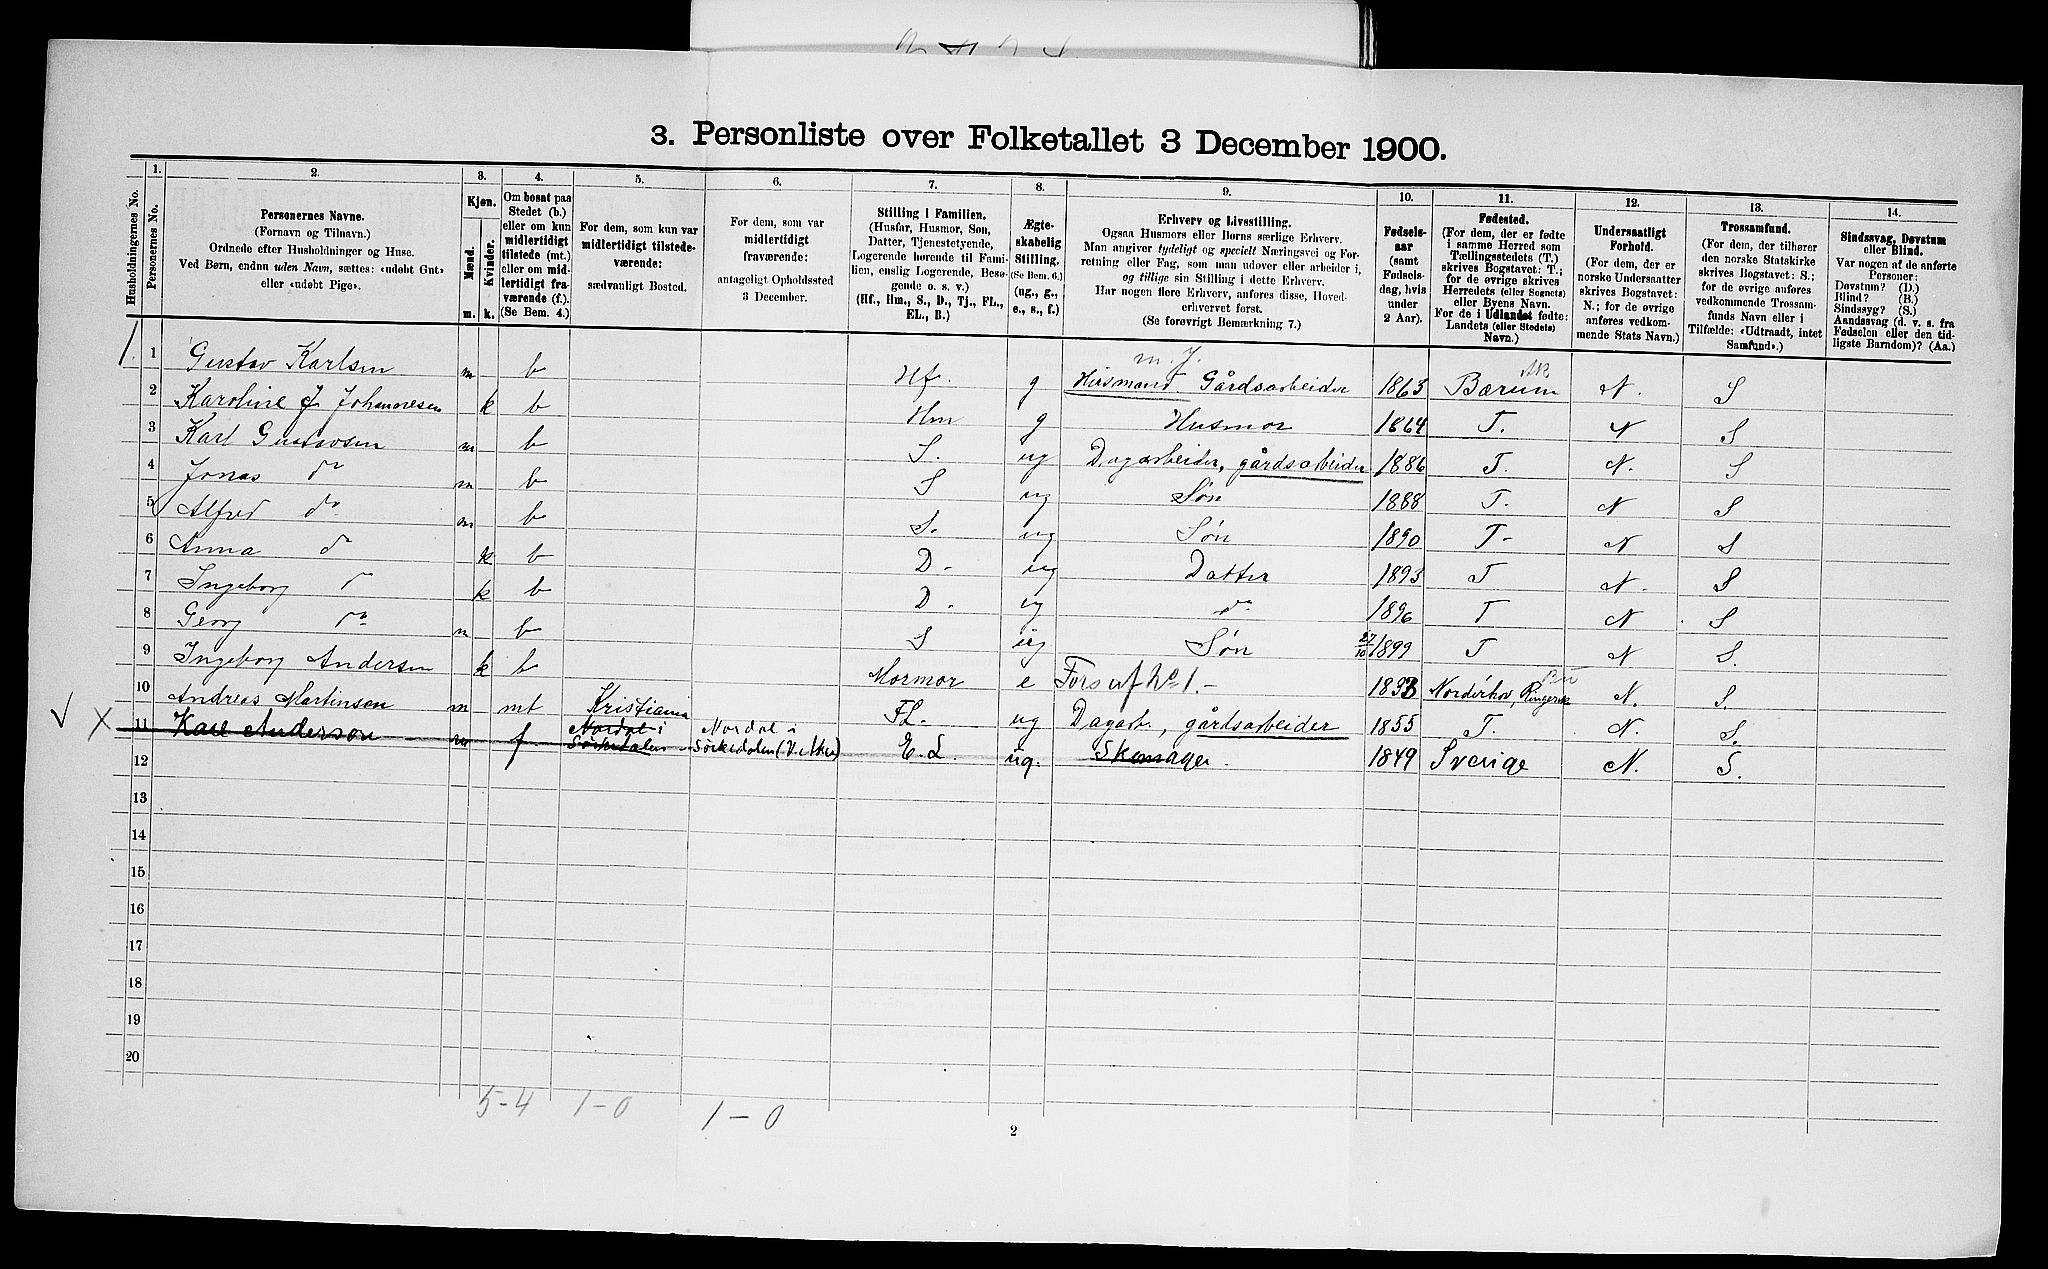 3. Personliste over Folketallet 3 December 1900.
Husholdningernes No.
1.
Personernes No.
2.
Personernes Navne.
(Fornavn og Tilnavn.)
Ordnede efter Husholdninger og Huse.
Ved Børn, endnu uden Navn, sættes: «udøbt Gut»
eller «udøbt Pige».
3.
Kjøn.
Mænd.
Kvinder.
m.
k.
4.
Om bosat paa
Stedet (b.)
eller om kun
midlertidigt
tilstede (mt.)
eller om mid-
lertidigt fra-
værende (f.).
(Se Bem. 4.)
5.
For dem, som kun var
midlertidigt tilstede-
værende:
sædvanligt Bosted.
6.
For dem, som var
midlertidigt
fraværende:
antageligt Opholdssted
3 December.
7.
Stilling i Familien.
(Husfar, Husmor, Søn,
Datter, Tjenestetyende,
Logerende hørende til Fami-
lien, enslig Logerende, Besø-
gende o. s. v.)
(Hf., Hm., S., D., Tj., FL.,
EL., B.)
8.
Ægte-
skabelig
Stilling.
(Se Bem. 6.)
(ug., g.,
e., s., f.)
9.
Erhverv og Livsstilling.
Ogsaa Husmors eller Børns særlige Erhverv.
Man angiver tydeligt og specielt Næringsvei og For-
retning eller Fag, som man udøver eller arbeider i,
og tillige sin Stilling i dette Erhverv.
Har nogen flere Erhverv, anføres disse, Hoved-
erhvervet først.
(Se forøvrigt Bemærkning 7.)
10.
Fødsels-
aar
(samt
Fødsels-
dag, hvis
under
2 Aar).
11.
Fødested.
(For dem, der er fødte
i samme Herred som
Tællingsstedets (T.)
skrives Bogstavet: T.;
for de øvrige skrives
Herredets (eller Sognets)
eller Byens Navn.
For de i Udlandet fødte:
Landets (eller Stedets)
Navn.)
12.
Undersaatligt
Forhold.
(For dem, der er
norske Undersaatter
skrives Bogstavet:
N.; for de øvrige
anføres vedkom-
mende Stats Navn.)
13.
Trossamfund.
(For dem, der tilhører
den norske Statskirke
skrives Bogstavet: S.;
for de øvrige anføres
vedkommende Trossam-
funds Navn eller i
Tilfælde: «Udtraadt, intet
Samfund».)
14.
Sindssvag, Døvstum
eller Blind.
Var nogen af de anførte
Personer:
Døvstum? (D.)
Blind? (B.)
Sindssyg? (S.)
Aandssvag (d. v. s. fra
Fødselen eller den tid-
ligste Barndom)? (Aa.)
m. J.
1. 1 Gustav Karlsen m b Hf. g Husmand. Gårdsarbeider 1863 Bærum N. S
2 Karoline J Johannesen k b Hm g Husmor 1864 T. N S
3 Karl Gustavsen m b S. ug Dagarbeider, gårdsarbeider 1886 T. N. S
4 Jonas do m b S ug Søn 1888 T. N S
5 Alfred do m b S. ug Søn 1890 T- N S
6 Anna do k b D- ug Datter 1893 T N. S
7 Ingeborg do k b D. ug do 1896 T N S
8 Georg do m b S ug Søn 27/10 1899 T N S.
9 Ingeborg Andersen k b Mormor e Fors af No 1.- 1833 Norderhov, Ringerik N. S.
10 Andreas Martinsen m mt Kristiania FL. ug Dagarb., gårdsarbeider 1855 T. N. S.
11 Karl Anderson m f. Nordal i Sörkedalen Nordal i Sörkedalen (V. Aker) E.L. ug. Skomager. 1849 Sverige N. S.
12
13
14
15
16
17
18
19
20
5-4 1-0 1-0
2